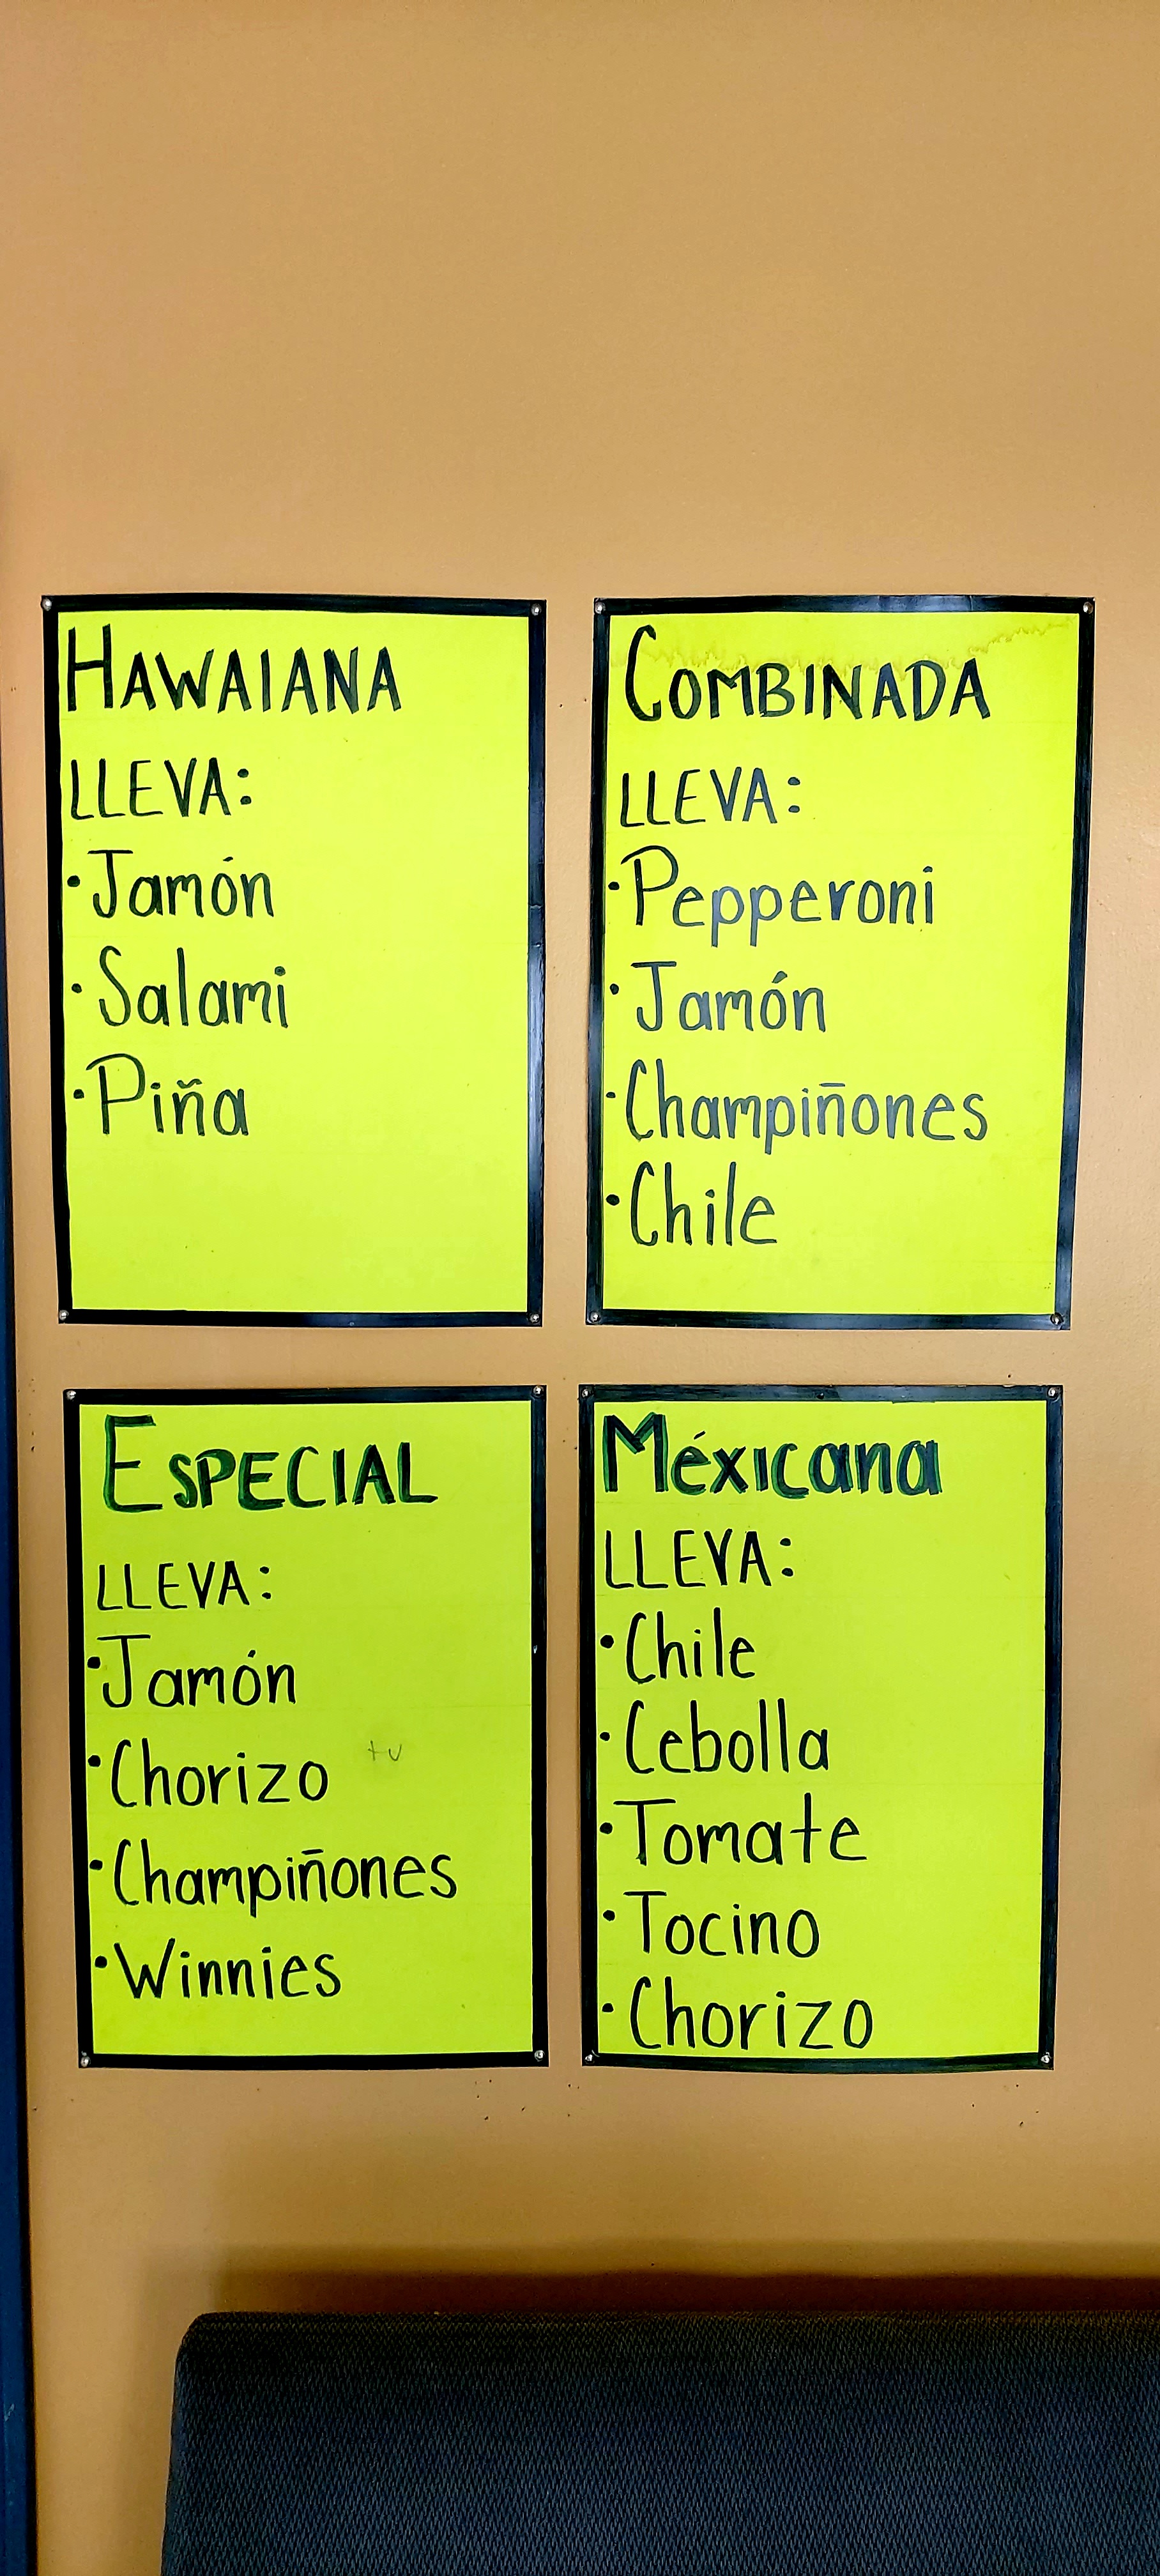 HAWAIANA
LLEVA:
•Jamón
•Salami
•Piña
COMBINADA
LLEVA:
•Pepperoni
•Jamón
•Champiñones
•Chile
ESPECIAL
LLEVA:
•Jamón
•Chorizo tu
•Champiñones
•Winnies
Méxicana
LLEVA:
•Chile
•Cebolla
•Tomate
•Tocino
•Chorizo